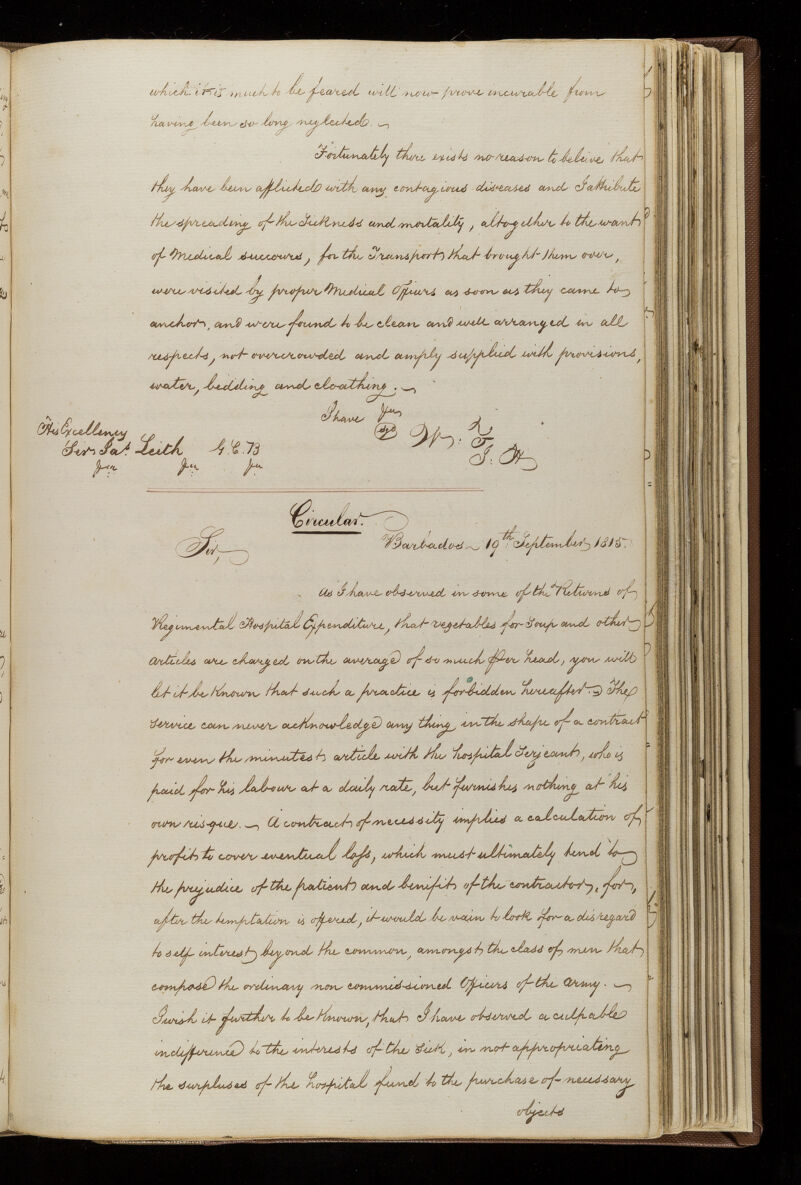 which it is much to be feared will now prove incurable from
having been so long neglected. ~
Fortunately there exists no reason to beleive that
they have been afflicted with any contagious diseases and I attribute
the spreading of the Sickness and mortality, altogether to the want
of Medical succours, for the Transports that brought them over,
were visited by proper Medical Officers as soon as they came to
anchor, and were found to be clean and well arranged in all
respects, not overcrowded and amply supplied with provisions,
water, bedding and cloathing. ~
I have &ca
Sgd W: F:
His Excellency
Sir Jas. Leith G.C.B
&ca &ca &ca
Circular.
Barbados ~ 19th September 1815.
Sir,
As I have observed in some of the Returns of
Regimental Hospital Expenditure, that vegetables for Soup and other
articles are charged on the average of so much Per head, you will
let it be Known that such a practice is forbidden hereafter. ~ The
service can never acknowledge any thing in the shape of a contract
for even the minutest article with the hospital Serjeant, who is
paid for his labour at a daily rate, but furnishes nothing at his
own risque. ~ A contract of necessity implies a calculation of
profit to cover eventual loss, which must ultimately tend to
the prejudice of the patient and benifit of the contractor, for,
after the temptation is offered, it would be vain to look for a disregard
to self interest beyond the common, amongst the class of men that
compose the ordinary non commissioned Officers of the army. ~
I wish it further to be Known, that I have observed a culpable
indifference to the interests of the Sick, in not appropriating
the surpluses of the hospital fund to the purchase of necessary
objects